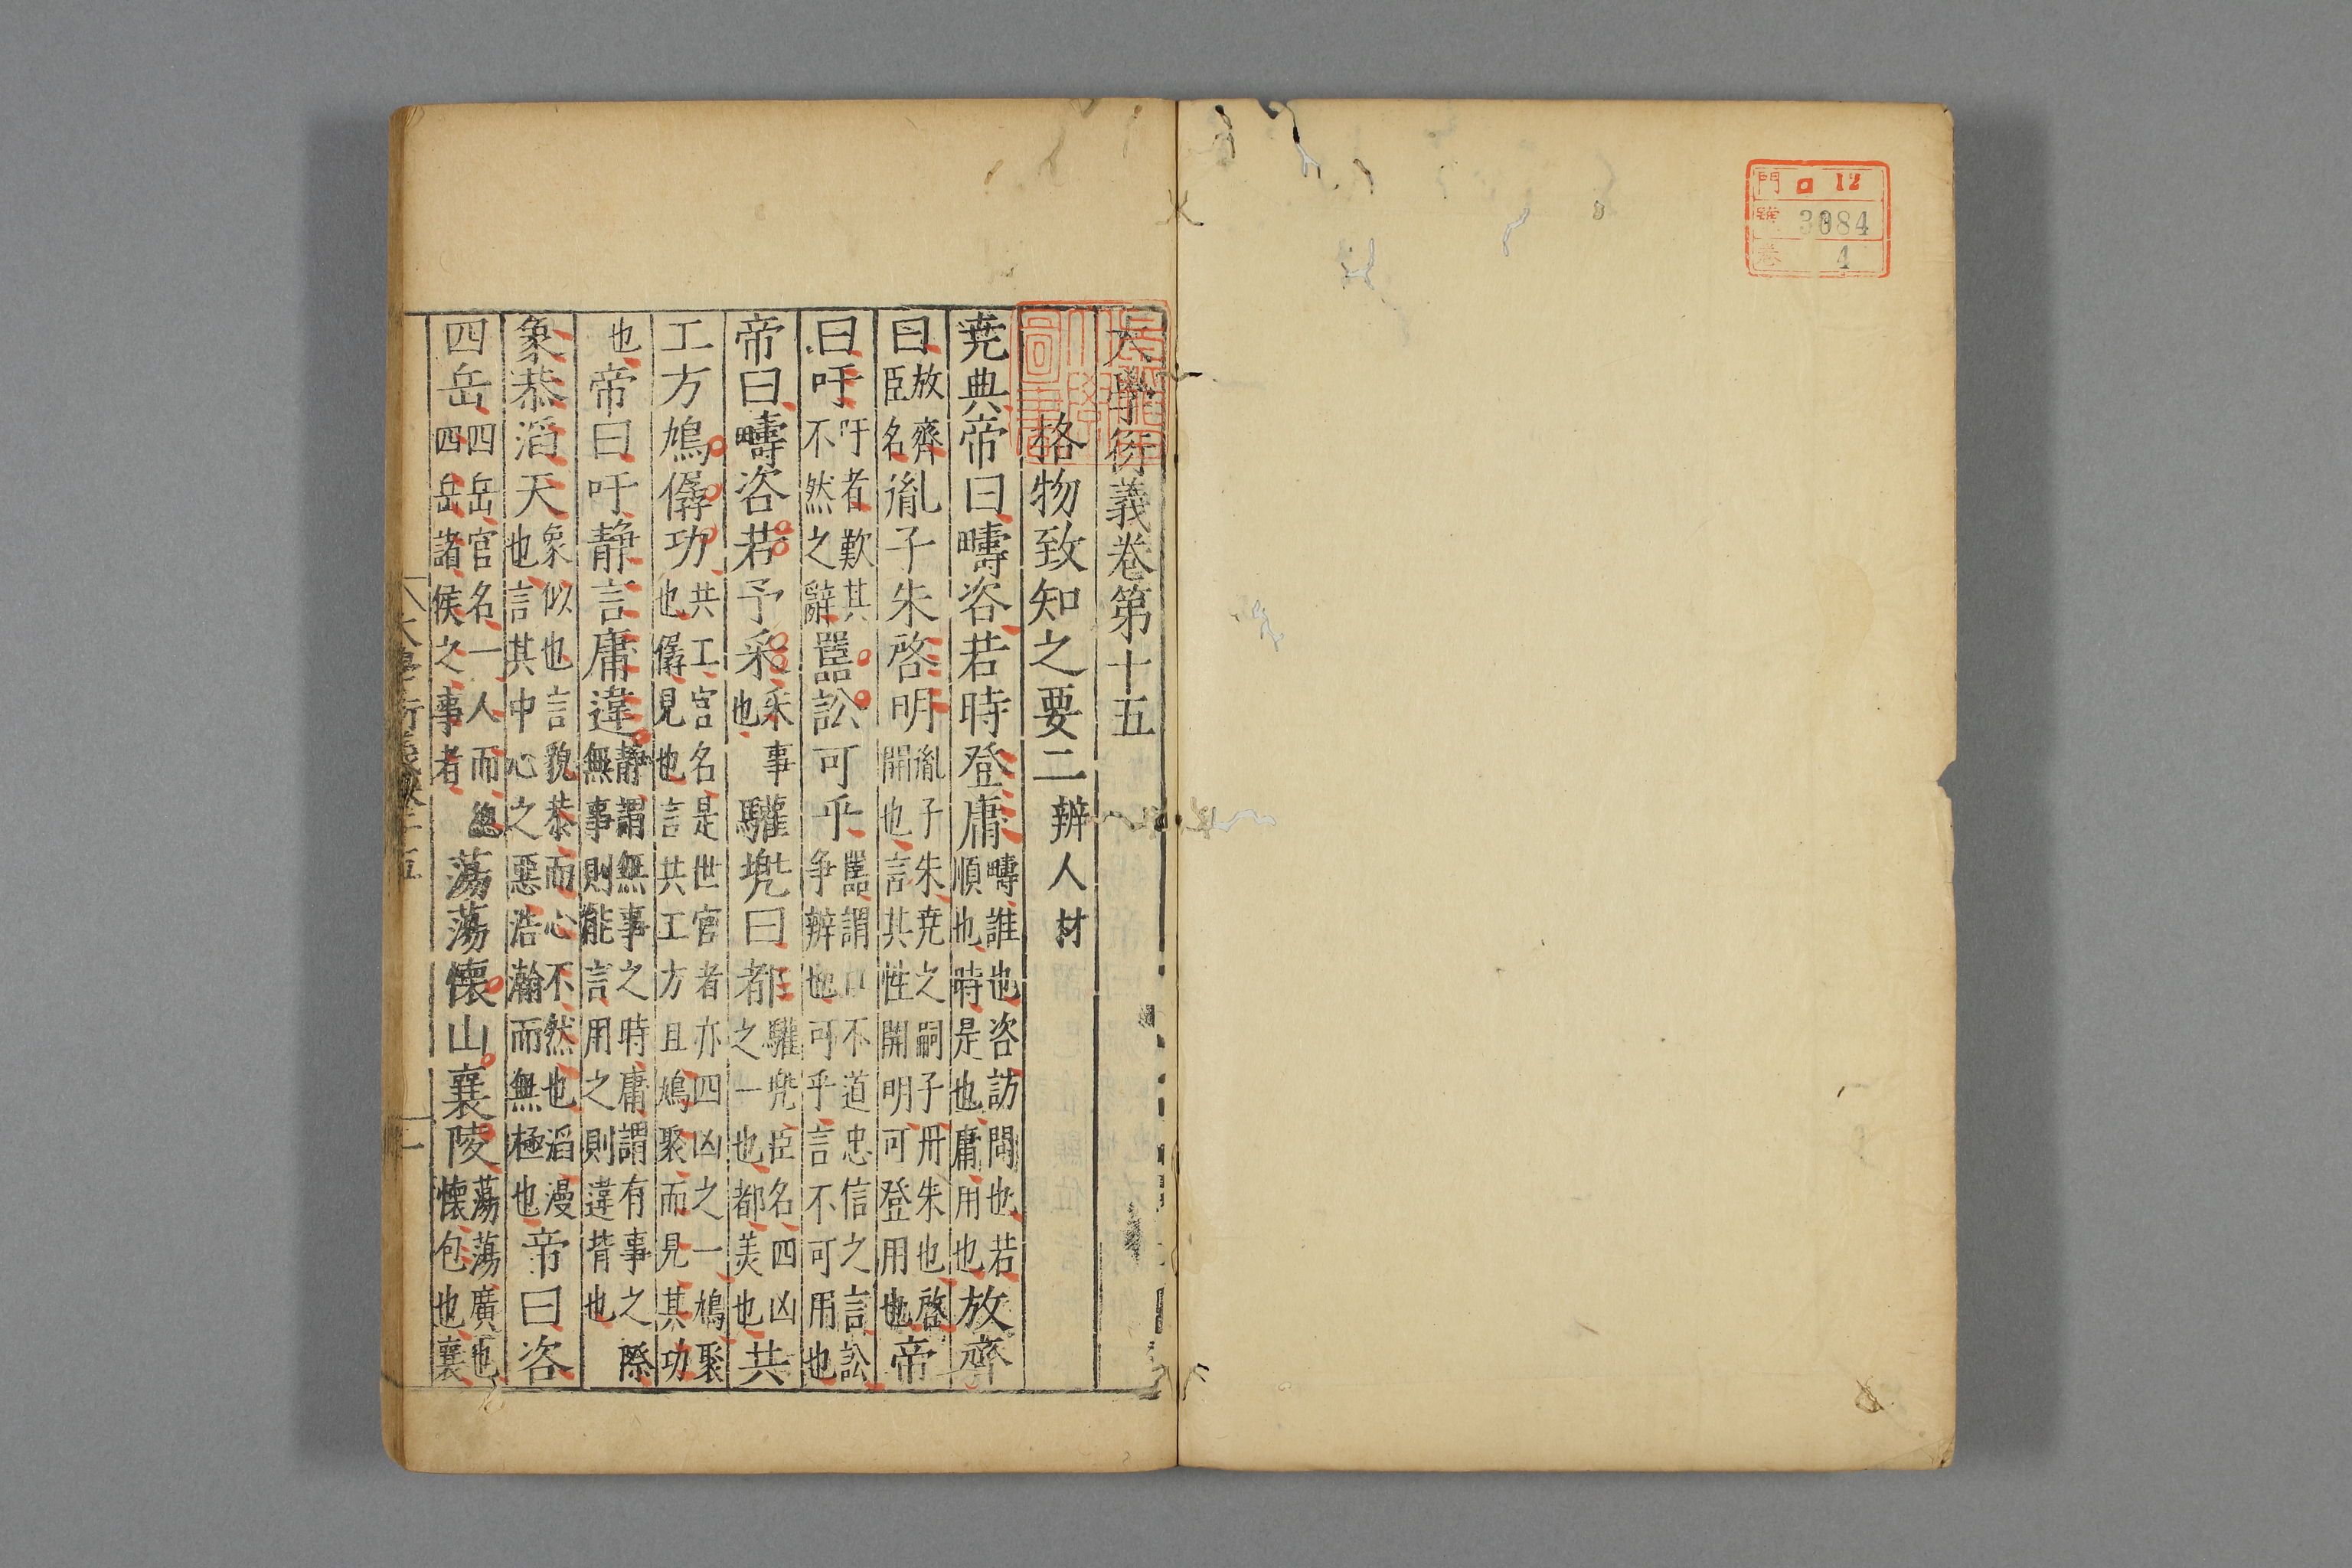 門 ロ 12
號 3084
卷 4
大學衍義卷第十五
格物致知之要二 辨人材
堯典帝曰疇咨若時登庸疇誰也咨訪問也若順也時是也庸用也放齊
曰放齊臣名胤子朱啓明胤子朱堯之嗣子丹朱也啓開也言其性開明可登用也帝
曰吁吁者歎其不然之辭嚚訟可乎嚚謂口不道忠信之言訟爭辨也可乎言不可用也
帝曰疇咨若予采采事也驩兠曰驩兠臣名四凶者之一也都美也共
工方鳩僝功共工官名是世官者亦四凶之一鳩聚也僝見也言共工方且鳩聚而見其功
也帝曰吁静言庸違静謂無事之時庸謂有事之際無事則能言用之則違背也
象恭滔天象似也言貌恭而心不然也滔漫也言其中心之惡浩瀚而無極也帝曰咨
四岳四岳官名一人而總四岳諸侯之事者蕩蕩懷山襄陵蕩蕩廣也懷包也襄